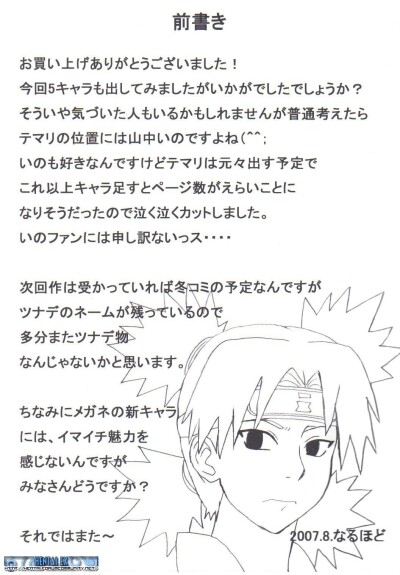 前書き
お買い上げありがとうございました！
今回5キャラも出してみましたがいかがでしたでしょうか？
そういや気づいた人もいるかもしれませんが普通考えたら
テマリの位置には山中いのですよね(^^；
いのも好きなんですけどテマリは元々出す予定で
これ以上キャラ足すとページ数がえらいことに
なりそうだったので泣く泣くカットしました。
いのファンには申し訳ないっス・・・・
次回作は受かっていれば冬コミの予定なんですが
ツナデのネームが残っているので
多分またツナデ物
なんじゃないかと思います。
ちなみにメガネの新キャラ
には、イマイチ魅力を
感じないんですが
みなさんどうですか？
それではまた～
2007.8.なるほど